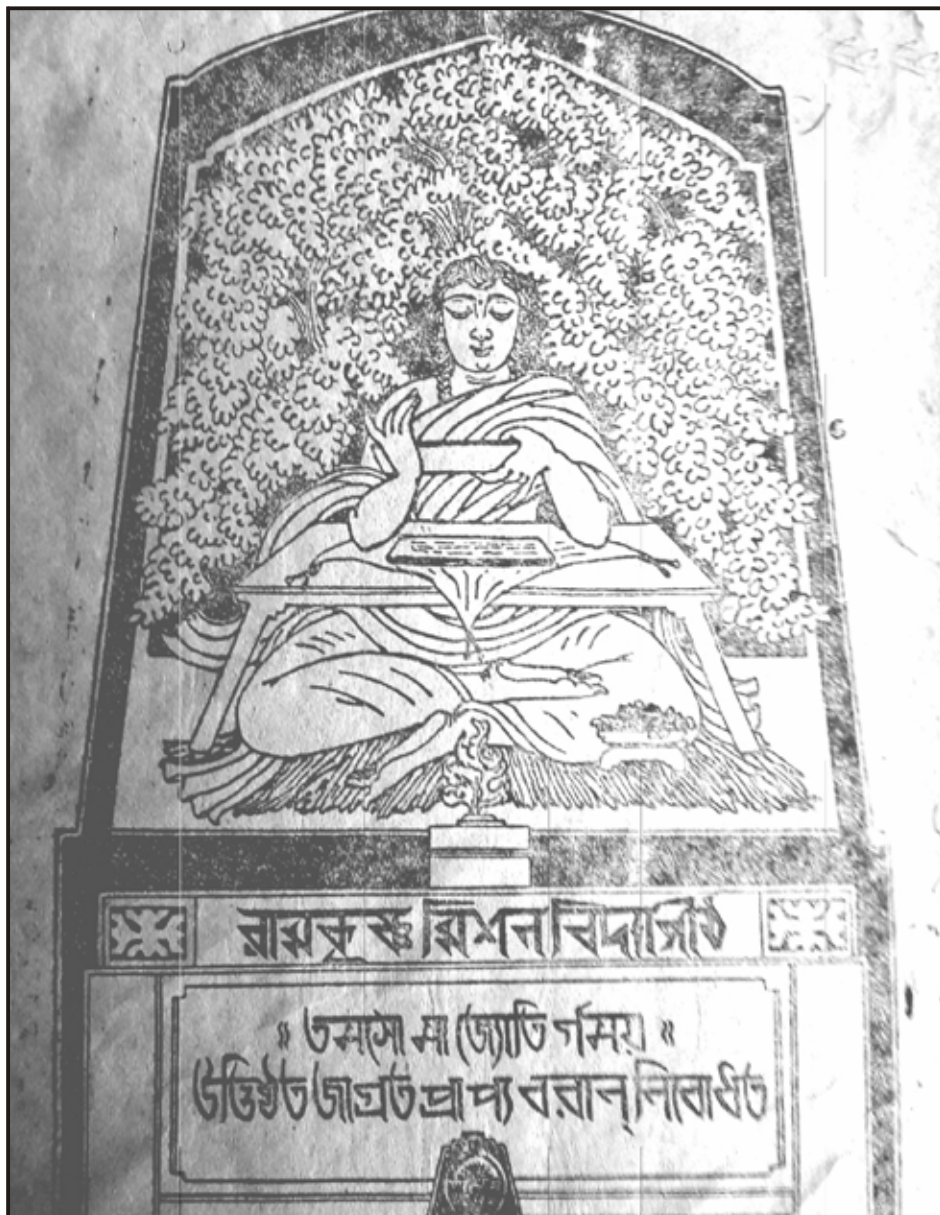 রামকৃষ্ণ মিশন বিদ্যাপীঠ
॥ তমসো মা জ্যোতি র্গময় ॥
উত্তিষ্ঠত জাগ্রত প্রাপ্য বরান্ নিবোধত